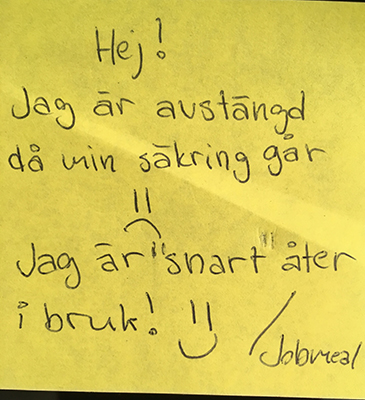 Hej!
Jag är avstängd
då min säkring går
Jag är "snart" åter
i bruk!
/Jobmeal